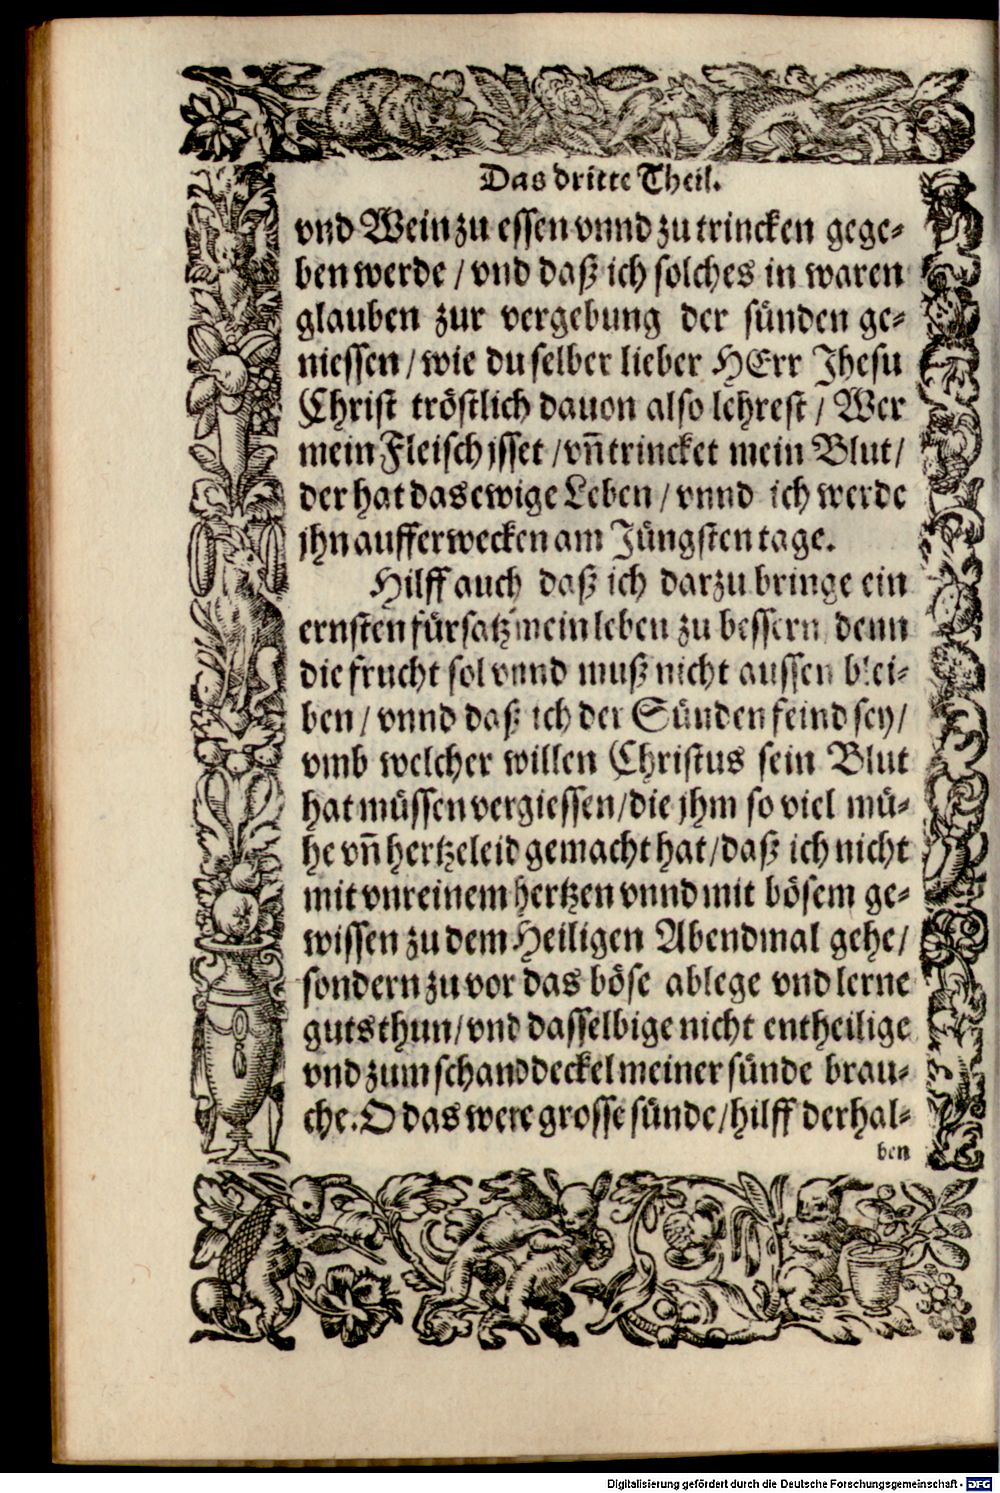 Das dritte Theil.
vnd Wein zu essen vnnd zu trincken gege-
ben werde / vnd daß ich solches in waren
glauben zur vergebung der sünden ge-
niessen / wie du selber lieber HErr Jhesu
Christ tröstlich dauon also lehrest / Wer
mein Fleisch jsset / vñ trincket mein Blut /
der hat das ewige Leben / vnnd ich werde
jhn aufferwecken am Jüngsten tage.
Hilff auch daß ich darzu bringe ein
ernsten fürsatz mein leben zu bessern, denn
die frucht sol vnnd muß nicht aussen blei-
ben / vnnd daß ich der Sünden feind sey /
vmb welcher willen Christus sein Blut
hat müssen vergiessen / die jhm so viel mü-
he vñ hertzeleid gemacht hat / daß ich nicht
mit vnreinem hertzen vnnd mit bösem ge-
wissen zu dem Heiligen Abendmal gehe /
sondern zuvor das böse ablege vnd lerne
guts thun / vnd dasselbige nicht entheilige
vnd zum schanddeckel meiner sünde brau-
che. O das were grosse sünde / hilff derhal-
ben
Digitalisierung gefördert durch die Deutsche Forschungsgemeinschaft - DFG